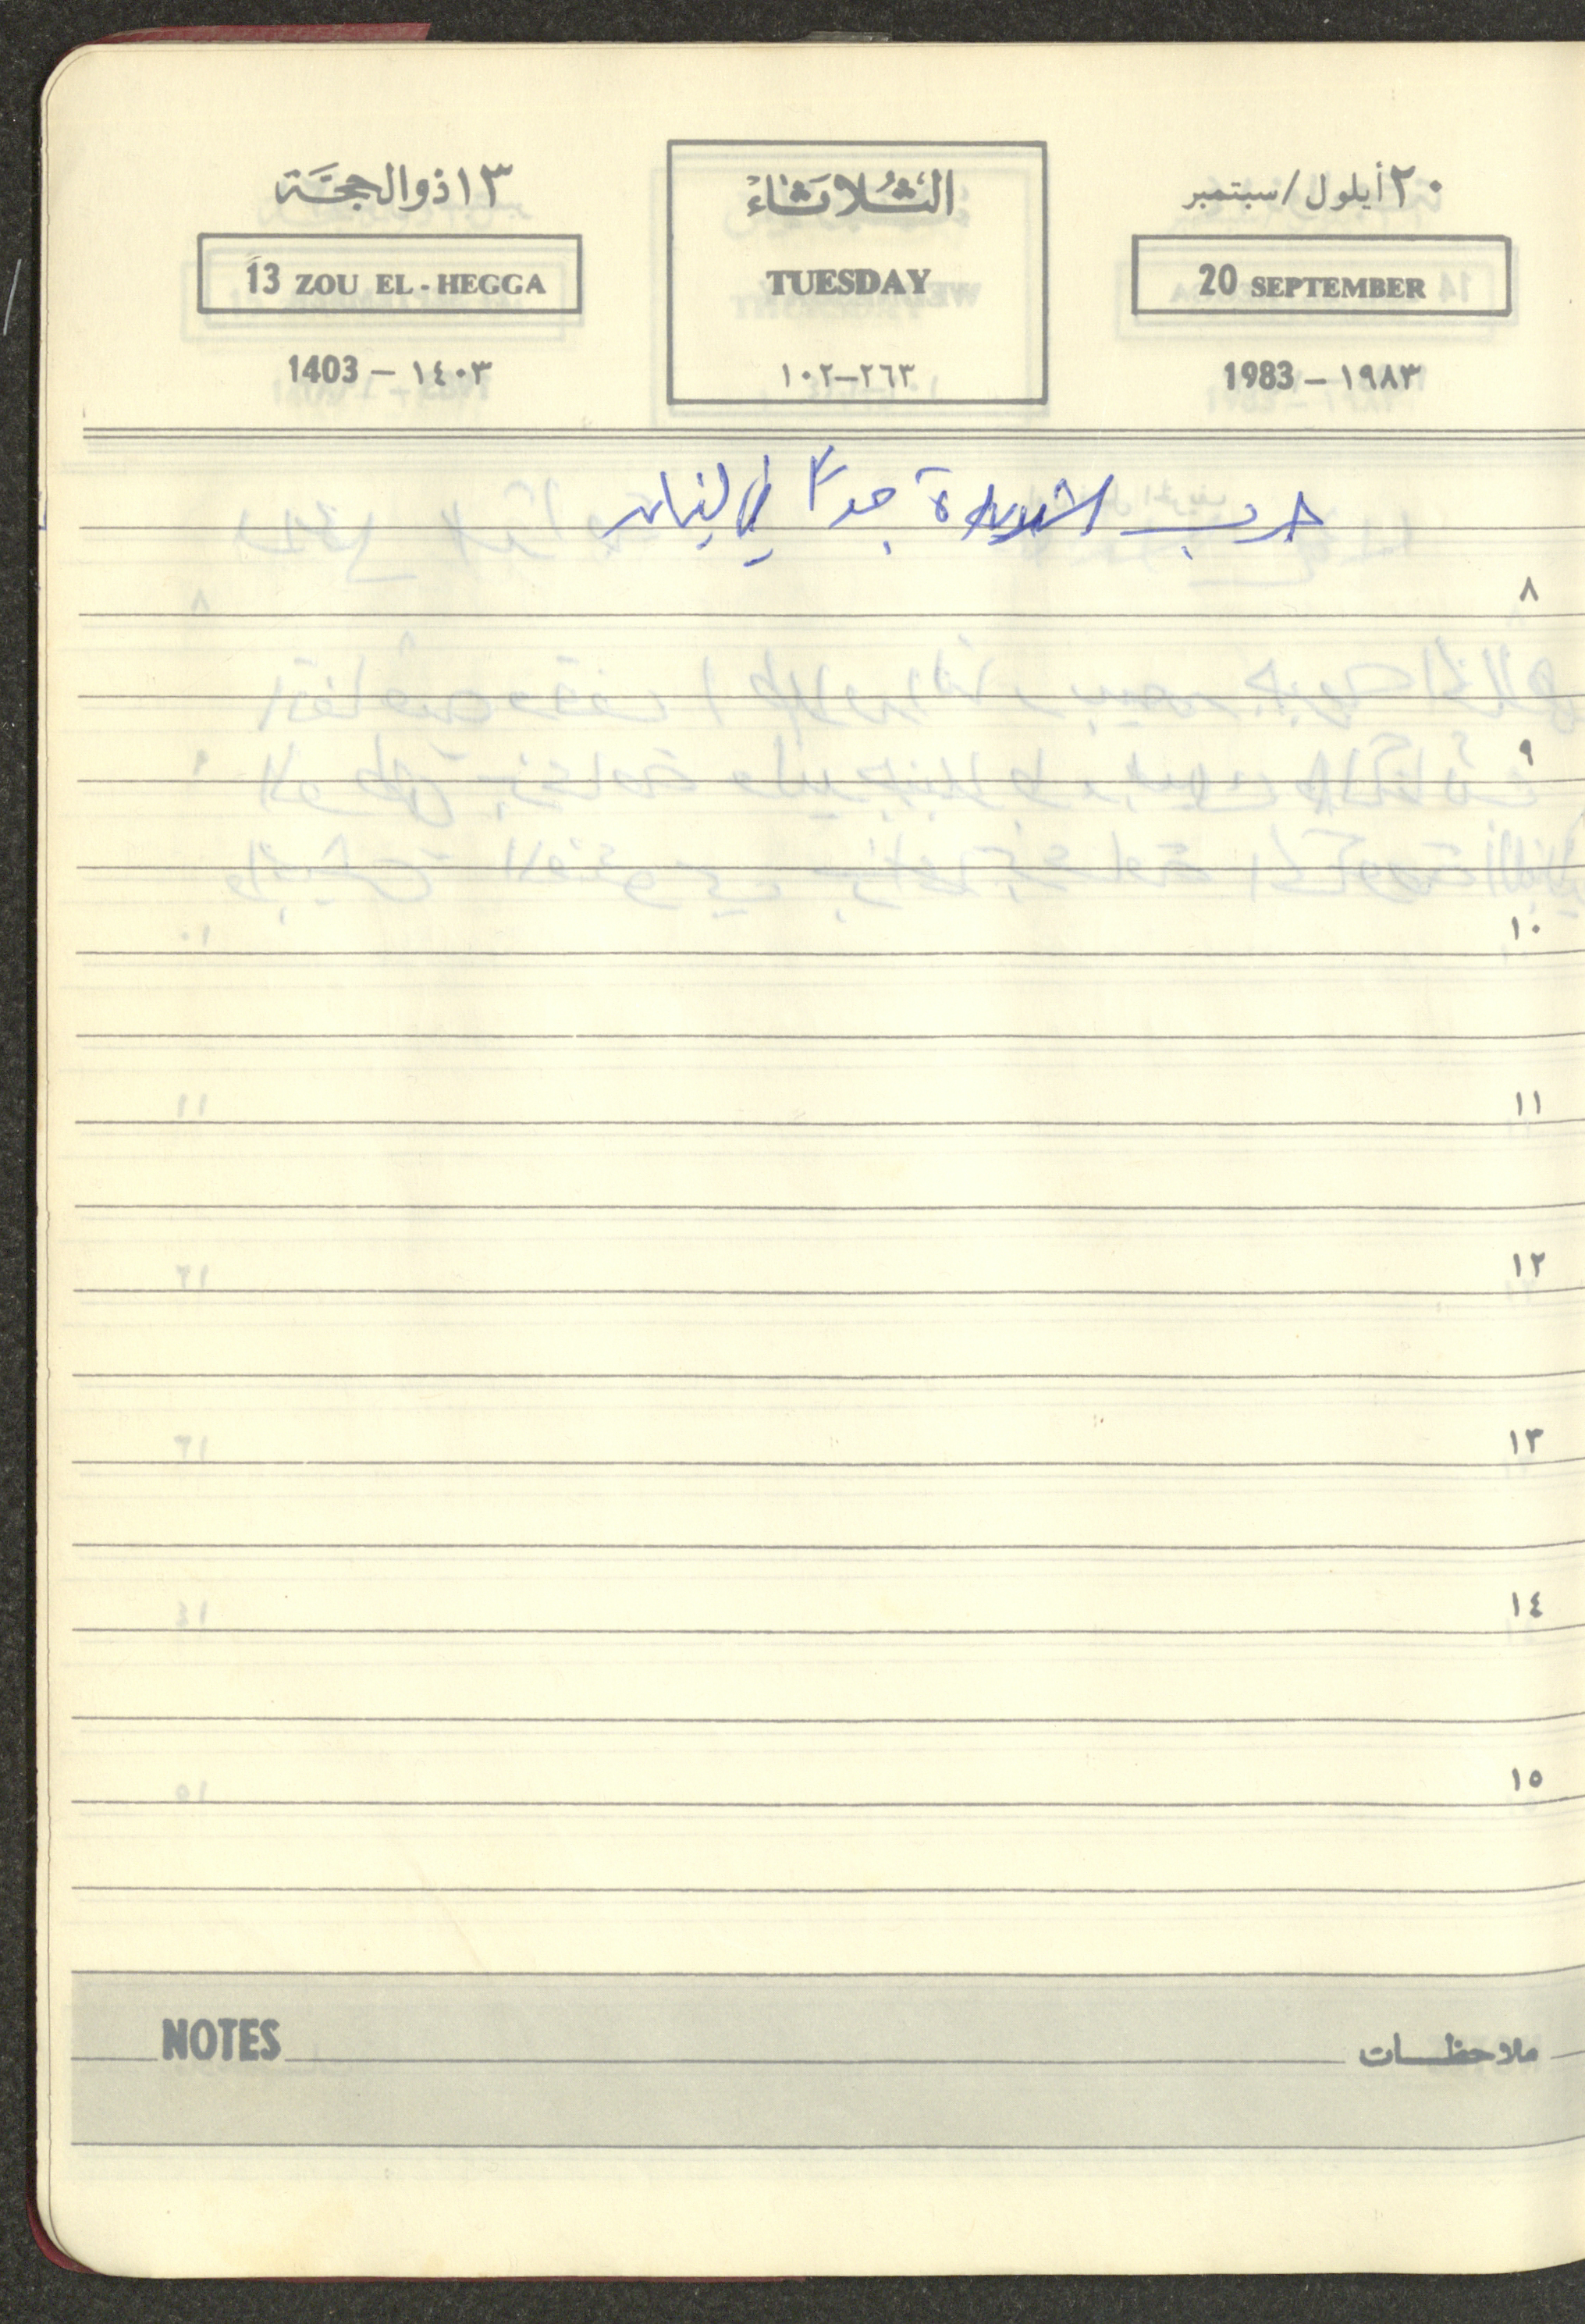 ٢٠ أيلول/سبتمبر
الثلاثاء
١٣ ذو الحجة
20 SEPTEMBER
TUESDAY
13 ZOU EL-HEGGA
1983 – ١٩٨٣
٢٦٣–١٠٢
1403 – ١٤٠٣
حرب شديدة جداً في لبنان
٨
٩
١٠
١١
١٢
١٣
١٤
١٥
NOTES
ملاحظات